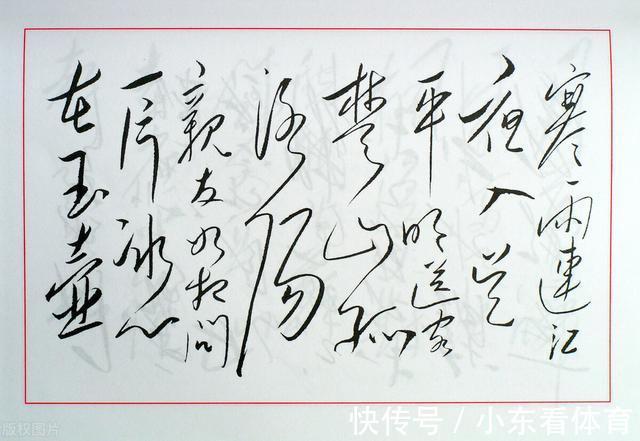 寒雨連江
夜入吴
平明送客
楚山孤
洛陽
親友如相问
一片冰心
在玉壶
版权图片
快传号 / 小东看体育